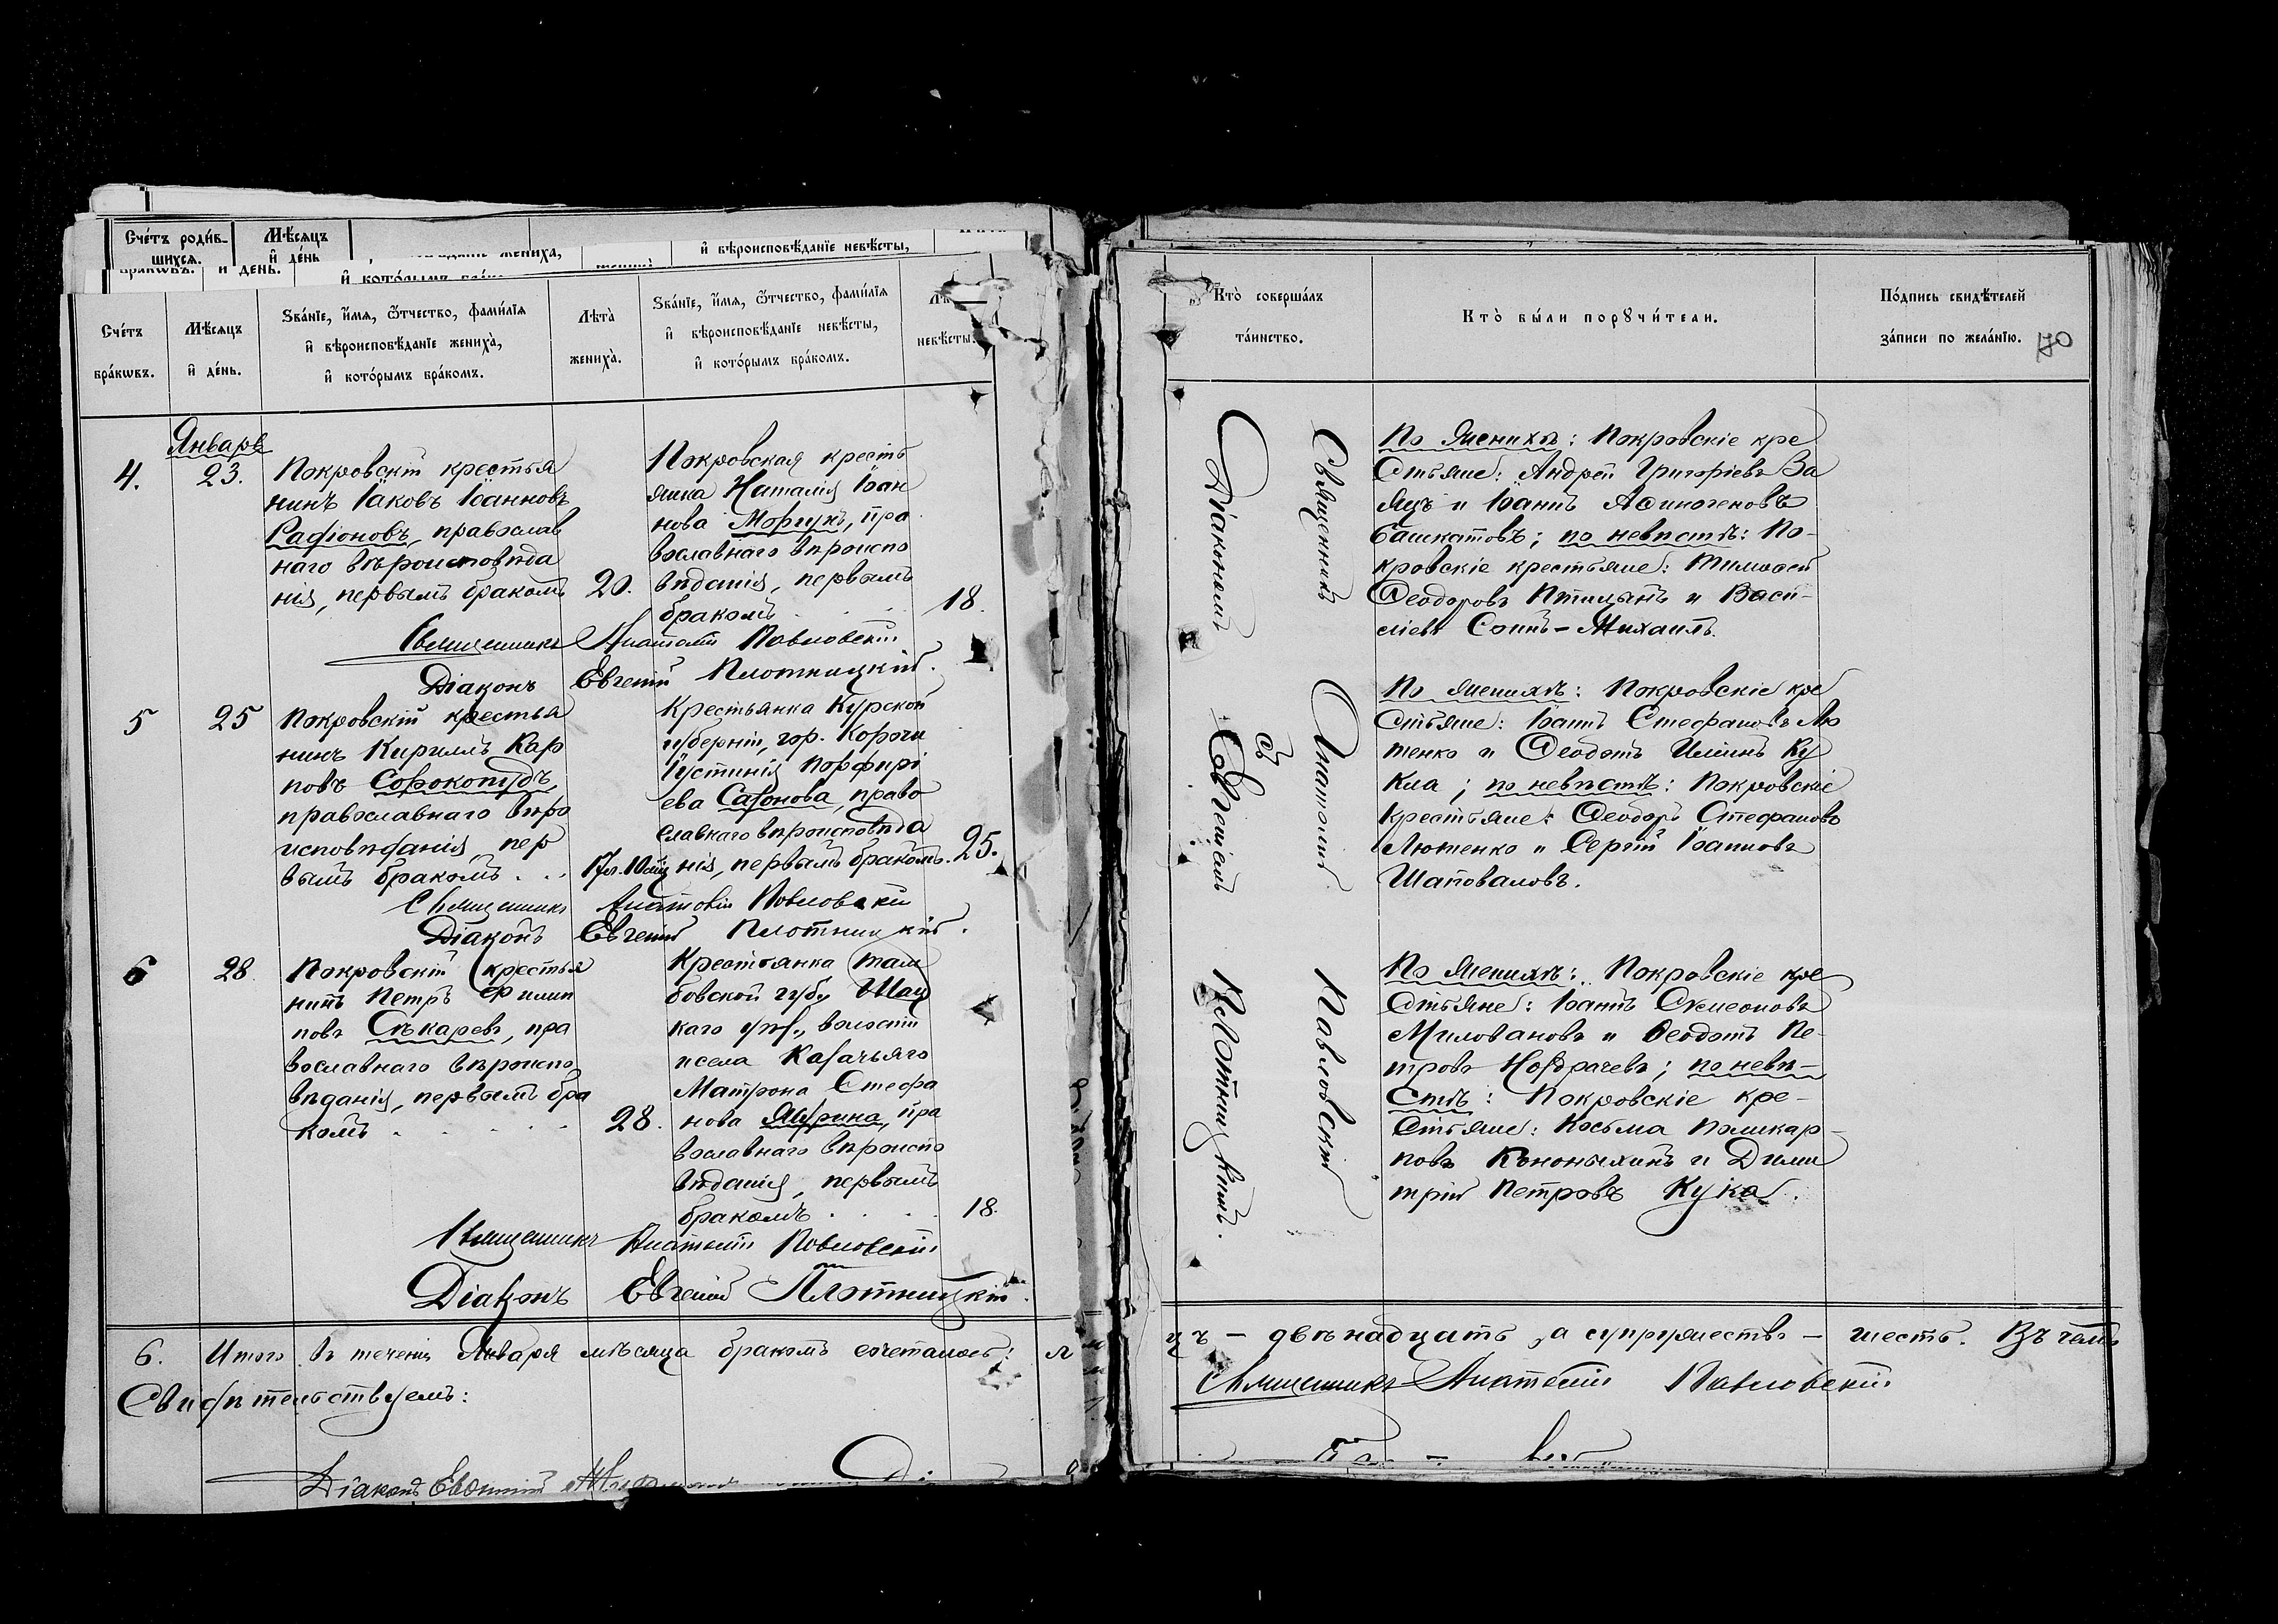 Сче́тъ роди́в-
шихсѧ.
Мѣ́сѧцъ
и҆ де́нь
и҆ вѣроисповѣ́данїе невѣ́сты,
Сче́тъ
бра́кωвъ.
Мѣ́сѧцъ
и҆ де́нь.
Ѕва́нїе, и҆́мѧ, ѻ҆́тчество, фами́лїѧ
и҆ вѣроисповѣ́данїе жениха̀,
и҆ кото́рымъ бра́комъ.
Лѣ́та̀
жениха̀.
Ѕва́нїе, и҆́мѧ, ѻ҆́тчество, фами́лїѧ
и҆ вѣроисповѣ́данїе невѣ́сты,
и҆ кото́рымъ бра́комъ.
невѣ́сты.
Январь
4.
23.
Покровскій крестья
нинъ Іаковъ Іоанновъ
Радіоновъ, православ
наго вѣроисповѣда
нія, первымъ бракомъ
20.
Покровская кресть
янка Наталія Іоан
нова Морцукъ, пра
вославнаго вѣроиспо
вѣданія, первымъ
бракомъ . . .
18.
Священникъ Анатолій Павловскій
Діаконъ Евгеній Плотницкій.
5
25
Покровскій крестья
нинъ Кириллъ Кар
повъ Сорокопудъ,
православнаго вѣро
исповѣданія, пер
вымъ бракомъ . . .
17л. 10мѣц
Крестьянка Курской
губерніи, гор. Корочи
Іустинія Порфирі
ева Сафонова, право
славнаго вѣроисповѣда
нія, первымъ бракомъ.
25.
Священникъ Анатолій Павловскій
Діаконъ Евгеній Плотницкій.
6
28.
Покровскій крестья
нинъ Петръ Филип
повъ Сѣкаревъ, пра
вославнаго вѣроиспо
вѣданія, первымъ бра
комъ . . . . .
28.
Крестьянка Там
бовской губ. Шац
каго уѣз., волости
и села Казачьяго
Матрона Стефа
нова Яшина, пра
вославнаго вѣроиспо
вѣданія, первымъ
бракомъ . . . .
18.
Священникъ Анатолій Павловскій
Діаконъ Евгеній Плотницкій.
6. Итого въ теченіи Января мѣсяца бракомъ сочеталось: л
Свидѣтельствуемъ:
Діаконъ
Кто̀ соверша́лъ
та́инство.
Кто̀ бы́ли порꙋчи́тели.
По́дпись свидѣ́телей
за́писи по жела́нїю.
70
Священникъ Анатолій Павловскій
съ
Діакономъ Евгеніемъ Плотницкимъ.
По женихѣ: Покровскіе кре
стьяне: Андрей Григорьевъ За
яцъ и Іоаннъ Аѳиногеновъ
Башкатовъ; по невѣстѣ: По-
кровскіе крестьяне: Тимоѳей
Ѳеодоровъ Птицынъ и Васи-
ліевъ Соинъ-Михаилъ.
По женихѣ: Покровскіе кре
стьяне: Іоаннъ Стефановъ Лю
тенко и Ѳеодотъ Ильинъ Ку
кла; по невѣстѣ: Покровскіе
крестьяне: Ѳеодоръ Стефановъ
Лютенко и Сергій Іоанновъ
Шаповаловъ.
По женихѣ: Покровскіе кре
стьяне: Іоаннъ Сѵмеоновъ
Миловановъ и Ѳеодотъ Пе-
тровъ Ноздрачевъ; по невѣ-
стѣ: Покровскіе кре-
стьяне: Косьма Поликар-
повъ Кононыхинъ и Дими
трій Петровъ Кука.
цъ - двѣнадцать, а супружествъ - шесть. Въ чемъ
Священникъ Анатолій Павловскій